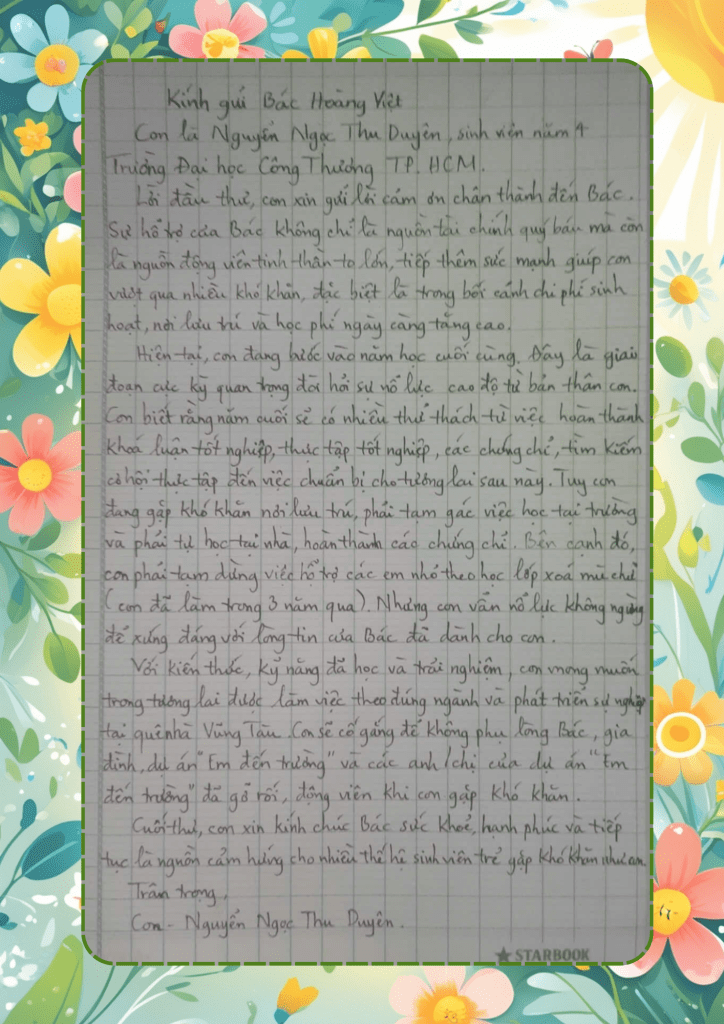 Kính gửi Bác Hoàng Việt
Con là Nguyễn Ngọc Thu Duyên, sinh viên năm 4
Trường Đại học Công Thương TP. HCM.
Lời đầu thư, con xin gửi lời cảm ơn chân thành đến Bác.
Sự hỗ trợ của Bác không chỉ là nguồn tài chính quý báu mà còn
là nguồn động viên tinh thần to lớn, tiếp thêm sức mạnh giúp con
vượt qua nhiều khó khăn, đặc biệt là trong bối cảnh chi phí sinh
hoạt, nơi lưu trú và học phí ngày càng tăng cao.
Hiện tại, con đang bước vào năm học cuối cùng. Đây là giai
đoạn cực kỳ quan trọng đòi hỏi sự nỗ lực cao độ từ bản thân con.
Con biết rằng năm cuối sẽ có nhiều thử thách từ việc hoàn thành
khoá luận tốt nghiệp, thực tập tốt nghiệp, các chứng chỉ, tìm kiếm
cơ hội thực tập đến việc chuẩn bị cho tương lai sau này. Tuy con
đang gặp khó khăn nơi lưu trú, phải tạm gác việc học tại trường
và phải tự học tại nhà, hoàn thành các chứng chỉ. Bên cạnh đó,
con phải tạm dừng việc hỗ trợ các em nhỏ theo học lớp xoá mù chữ
(con đã làm trong 3 năm qua). Nhưng con vẫn nỗ lực không ngừng
để xứng đáng với lòng tin của Bác đã dành cho con.
Với kiến thức, kỹ năng đã học và trải nghiệm, con mong muốn
trong tương lai được làm việc theo đúng ngành và phát triển sự nghiệp
tại quê nhà Vũng Tàu. Con sẽ cố gắng để không phụ lòng Bác, gia
đình, dự án "Em đến trường" và các anh/chị của dự án "Em
đến trường" đã gỡ rối, động viên khi con gặp khó khăn.
Cuối thư, con xin kính chúc Bác sức khoẻ, hạnh phúc và tiếp
tục là nguồn cảm hứng cho nhiều thế hệ sinh viên trẻ gặp khó khăn như con
Trân trọng,
Con - Nguyễn Ngọc Thu Duyên.
★ STARBOOK